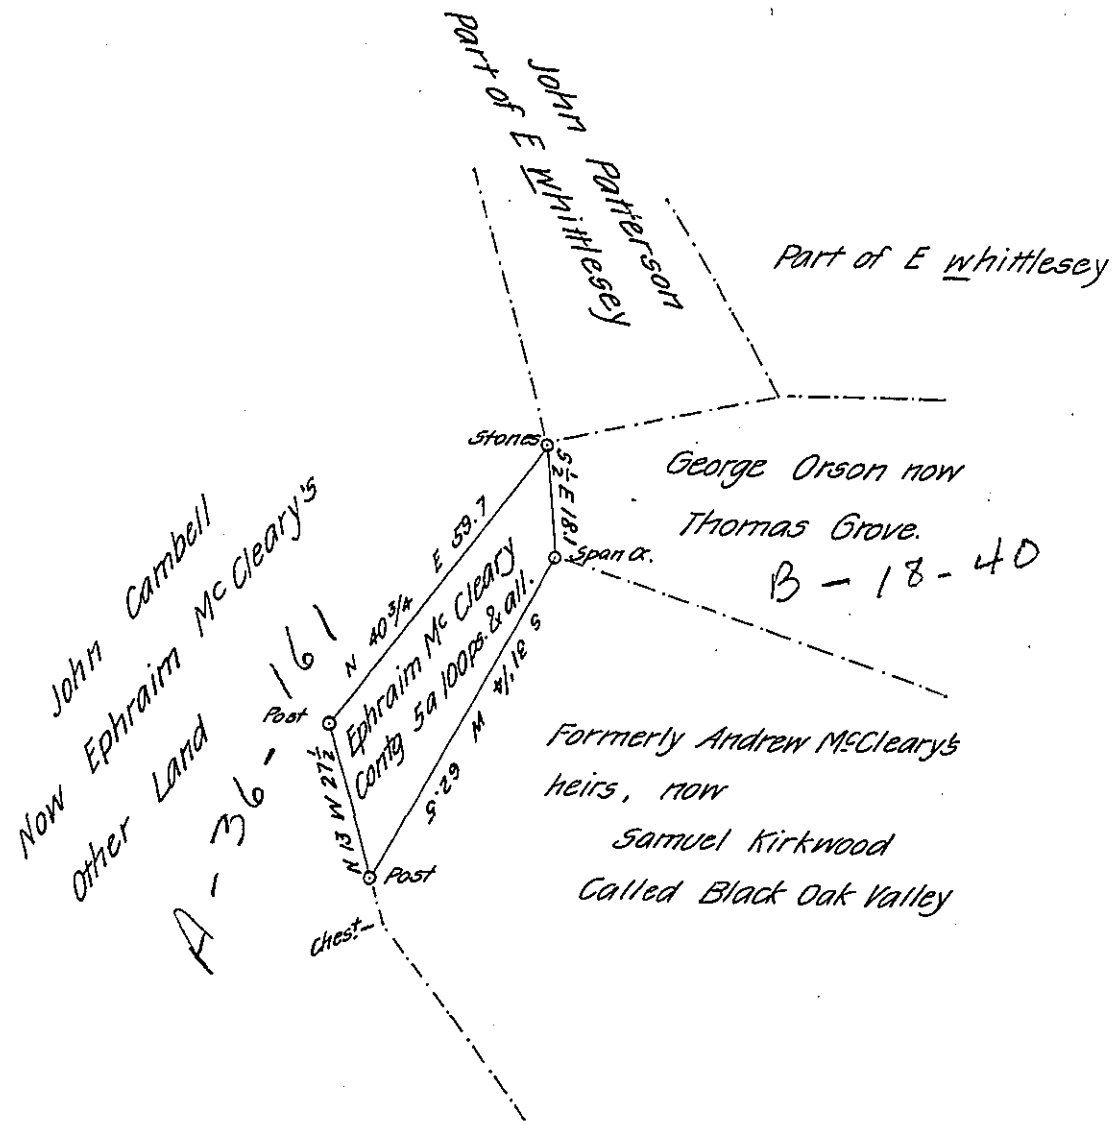 John Patterson
Part of E Whittlesey
Part of E Whittlesey
Stones
S ½ E 18.1
George Orson now
Thomas Grove.
B - 18 - 40
Span O.
John Cambell
Now Ephraim McCleary's
Other Land
A - 36 - 161
N 40 3/4 E 59.7
Ephraim McCleary
Contg 5a 100ps. & all.
S 31 1/4 W 62.5
Post
N 13 W 27½
Post
Chest.
Formerly Andrew McCleary's
heirs, now
Samuel Kirkwood
Called Black Oak Valley